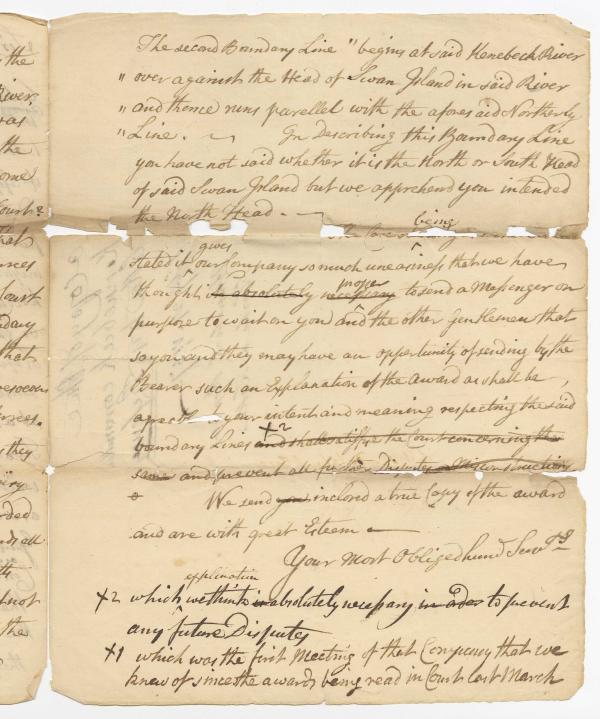 The second Boundary Line "begins at said Kenebeck River
" over against the Head of Swan Island in said River
" and thence runs parellel with the aforesaid Northerly
" Line. In Describing this Boundary Line
you have not said whether it is the North or South Head
of said Swan Island but we apprehend you intended
the North Head.
being
The Case
gives
stated it our Company so much uneasiness that we have
proper
thought it absolutely necessary to send a Messenger on
purpose to wait on you and the other Gentlemen that
so you and they may have an opportunity of sending by the
Bearer such an Explanation of the Award as shall be,
agreeable your intent and meaning respecting the said
+2
boundary Lines and shall satisfye the Court concerning the
same and prevent all further Disputes or Misconstructions
We send you inclosed a true Copy of the award
and are with great Esteem
Your Most Obliged hum Servts
explination
+2 which we think is absolutely necessary in order to prevent
any future Disputes
+1 which was the first Meeting of that Company that we
knew of since the award being read in Court last March
the
River
was
the
come
Court
that
Court
that
they
all
not
the